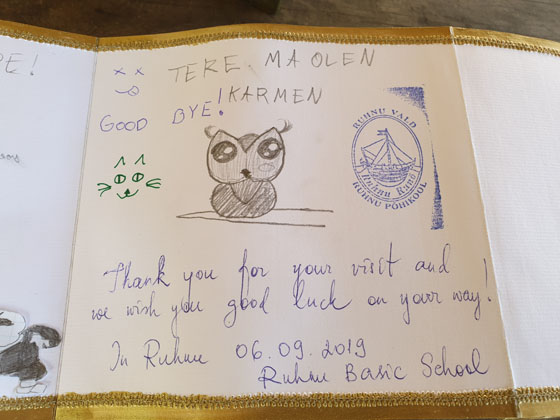 PE!
TERE. MA OLEN
KARMEN!
GOOD BYE!
RUHNU VALD
Ruhnu Rand
RUHNU PÕHIKOOL
Thank you for your visit and
we wish you good luck on your way!
In Ruhnu 06.09.2019
Ruhnu Basic School